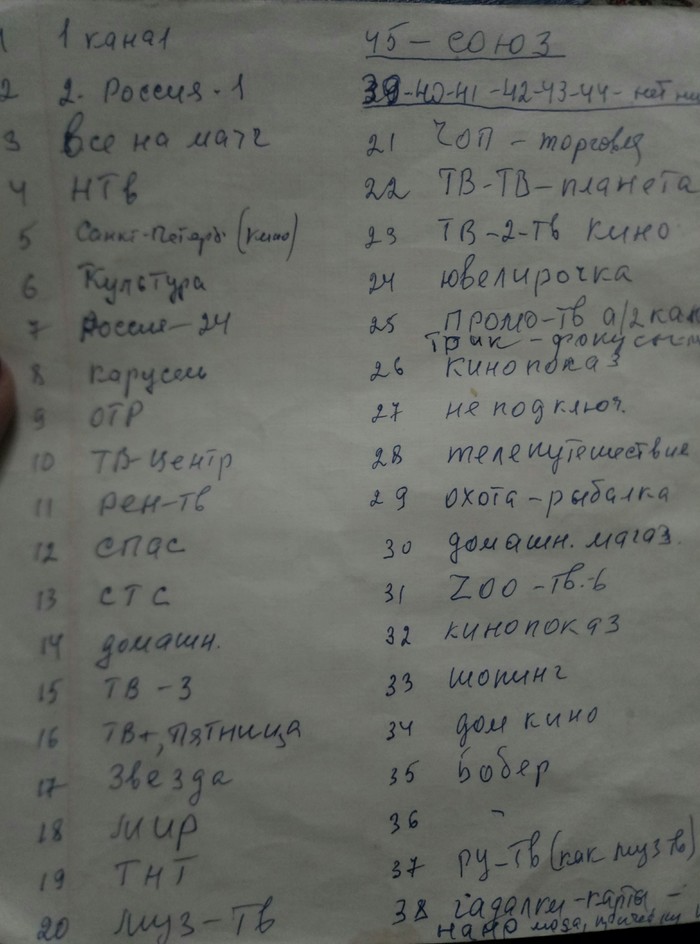 1 1 канал
2 2. Россия-1
3 Все на матч
4 НТВ
5 Санкт-Петерб. (кино)
6 Культура
7 Россия-24
8 Карусель
9 ОТР
10 ТВ-Центр
11 Рен-ТВ
12 СПАС
13 СТС
14 домашн.
15 ТВ-3
16 ТВ+, Пятница
17 Звезда
18 МИР
19 ТНТ
20 муз-ТВ
45 - СОЮЗ
39-40-41-42-43-44- нет
21 ЧОП - торговля
22 ТВ-ТВ-планета
23 ТВ-2-ТВ кино
24 ювелирочка
25 ПРОМО-ТВ а/2 кан
26 кинопоказ
27 не подключ.
28 телепутешествие
29 охота-рыбалка
30 домашн. магаз.
31 ZOO-ТВ-Б
32 кинопоказ
33 шопинг
34 дом кино
35 Бобер
36 -
37 РУ-ТВ (как муз тв)
38 гадалки-карты -
мода,